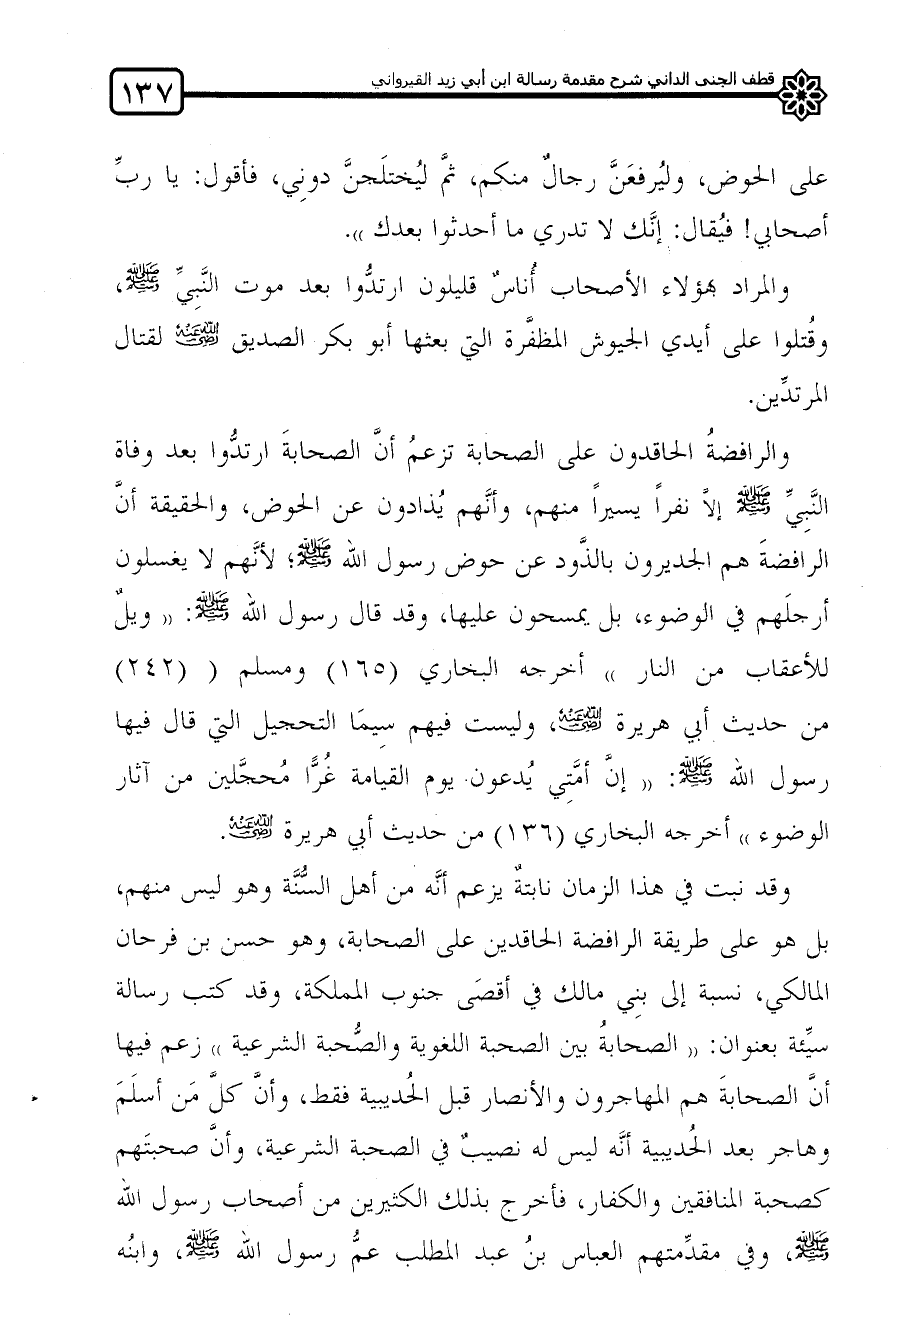 قطف الجنى الداني شرح مقدمة رسالة ابن أبي زيد القيرواني
١٣٧
على الحوض، وليُرفعَنَّ رجالٌ منكم، ثمَّ ليُختلَجنَّ دونِي، فأقول: يا ربِّ
أصحابي! فيُقال: إنَّك لا تدري ما أحدثوا بعدك )).
والمراد بهؤلاء الأصحاب أُناسٌ قليلون ارتدُّوا بعد موت النَّبيِّ ﷺ،
وقُتلوا على أيدي الجيوش المظفَّرة التي بعثها أبو بكر الصديق رضي الله عنه لقتال
المرتدِّين.
والرافضةُ الحاقدون على الصحابة تزعمُ أنَّ الصحابةَ ارتدُّوا بعد وفاة
النَّبيِّ ﷺ إلاَّ نفراً يسيراً منهم، وأنَّهم يُذادون عن الحوض، والحقيقة أنَّ
الرافضةَ هم الجديرون بالذَّود عن حوض رسول الله ﷺ؛ لأنَّهم لا يغسلون
أرجلَهم في الوضوء، بل يمسحون عليها، وقد قال رسول الله ﷺ: (( ويلٌ
للأعقاب من النار )) أخرجه البخاري (١٦٥) ومسلم ( (٢٤٢)
من حديث أبي هريرة رضي الله عنه، وليست فيهم سِيمَا التحجيل التي قال فيها
رسول الله ﷺ: (( إنَّ أمَّتِي يُدعون يوم القيامة غُرًّا مُحجَّلين من آثار
الوضوء )) أخرجه البخاري (١٣٦) من حديث أبي هريرة رضي الله عنه.
وقد نبت في هذا الزمان نابتةٌ يزعم أنَّه من أهل السُّنَّة وهو ليس منهم،
بل هو على طريقة الرافضة الحاقدين على الصحابة، وهو حسن بن فرحان
المالكي، نسبة إلى بنِي مالك في أقصَى جنوب المملكة، وقد كتب رسالة
سيِّئة بعنوان: (( الصحابةُ بين الصحبة اللغوية والصُّحبة الشرعية )) زعم فيها
أنَّ الصحابةَ هم المهاجرون والأنصار قبل الحُديبية فقط، وأنَّ كلَّ مَن أسلَمَ
وهاجر بعد الحُديبية أنَّه ليس له نصيبٌ في الصحبة الشرعية، وأنَّ صحبتَهم
كصحبة المنافقين والكفار، فأخرج بذلك الكثيرين من أصحاب رسول الله
ﷺ، وفي مقدِّمتهم العباس بنُ عبد المطلب عمُّ رسول الله ﷺ، وابنُه